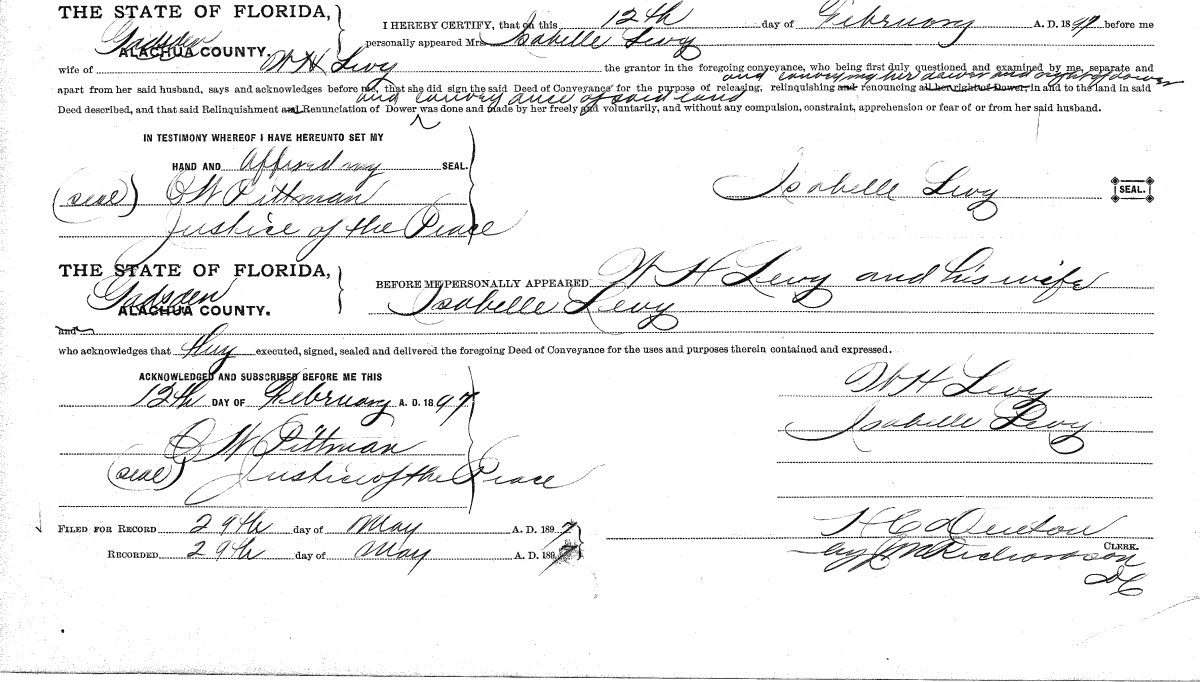 THE STATE OF FLORIDA,
Gadsden
ALACHUA COUNTY.
I HEREBY CERTIFY, that on this 12th day of February A. D. 1897 before me
personally appeared Mrs. Isabelle Levy
wife of W H Levy the grantor in the foregoing conveyance, who being first duly questioned and examined by me, separate and
and conveying her dower and right of dower
apart from her said husband, says and acknowledges before me, that she did sign the said Deed of Conveyance for the purpose of releasing, relinquishing and renouncing all her right of Dower, in and to the land in said
and conveyance of said land
Deed described, and that said Relinquishment and Renunciation of Dower was done and made by her freely and voluntarily, and without any compulsion, constraint, apprehension or fear of or from her said husband.
IN TESTIMONY WHEREOF I HAVE HEREUNTO SET MY
HAND AND Affixed my SEAL.
(seal) O W Pittman
Justice of the Peace
Isabelle Levy SEAL.
THE STATE OF FLORIDA,
Gadsden
ALACHUA COUNTY.
BEFORE ME PERSONALLY APPEARED W H Levy and his wife
Isabelle Levy
and
who acknowledges that they executed, signed, sealed and delivered the foregoing Deed of Conveyance for the uses and purposes therein contained and expressed.
ACKNOWLEDGED AND SUBSCRIBED BEFORE ME THIS
12th DAY OF February A. D. 1897
O W Pittman
(seal) Justice of the Peace
W H Levy
Isabelle Levy
FILED FOR RECORD 29th day of May A. D. 1897
RECORDED 29th day of May A. D. 1897
H C Denton
CLERK.
by J M Richardson
DC